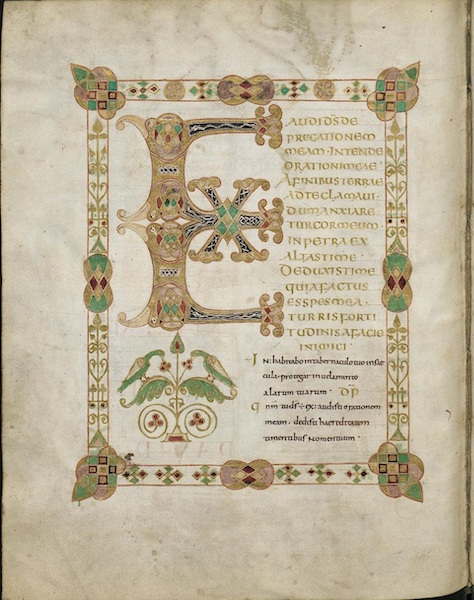 EXAUDI DS DE
PRECATIONEM
MEAM · INTENDE
ORATIONI MEAE
A FINIBUS TERRAE
AD TE CLAMAUI ·
DUM ANXIARE
TUR COR MEUM
IN PETRA EX
ALTASTI ME
DEDUXISTI ME
QUIA FACTUS
ES SPES MEA ·
TURRIS FORTI
TUDINIS A FACIE
INIMICI
IN habitabo in tabernaculo tuo in sae
cula · protegar in uelamento
alarum tuarum · DP
Qnm tu ds ÷ ex audisti orationem
meam · dedisti haereditatem
timentibus nomen tuum ·